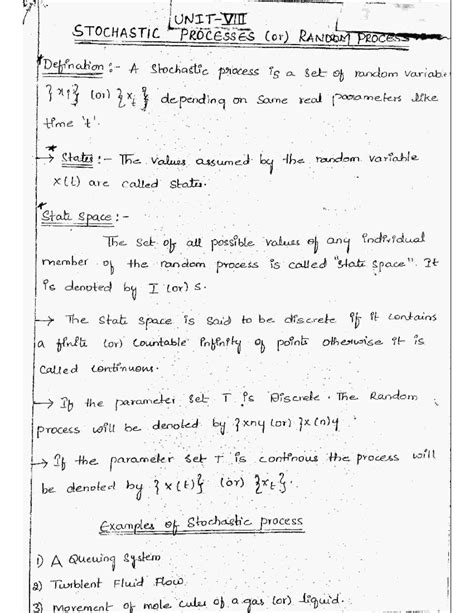 UNIT-VIII
STOCHASTIC PROCESSES (or) RANDOM PROCESS
* Defination :- A Stochastic process is a set of random variable
{x1} (or) {xt} depending on same real parameters like
time 't'.
→ States :- The values assumed by the random variable
x(t) are called states.
* State Space :-
The set of all possible values of any individual
member of the random process is called "state space". It
is denoted by I (or) S.
→ The state space is said to be discrete if it contains
a finite (or) countable infinity of points otherwise it is
called continuous.
→ If the parameter set T is Discrete. The Random
process will be denoted by {xn} (or) {x(n)}
→ If the parameter set T is continous the process will
be denoted by {x(t)} (or) {xt}.
Examples of Stochastic process
1) A Queuing System
2) Turblent Fluid Flow
3) Movement of mole cules of a gas (or) liquid.